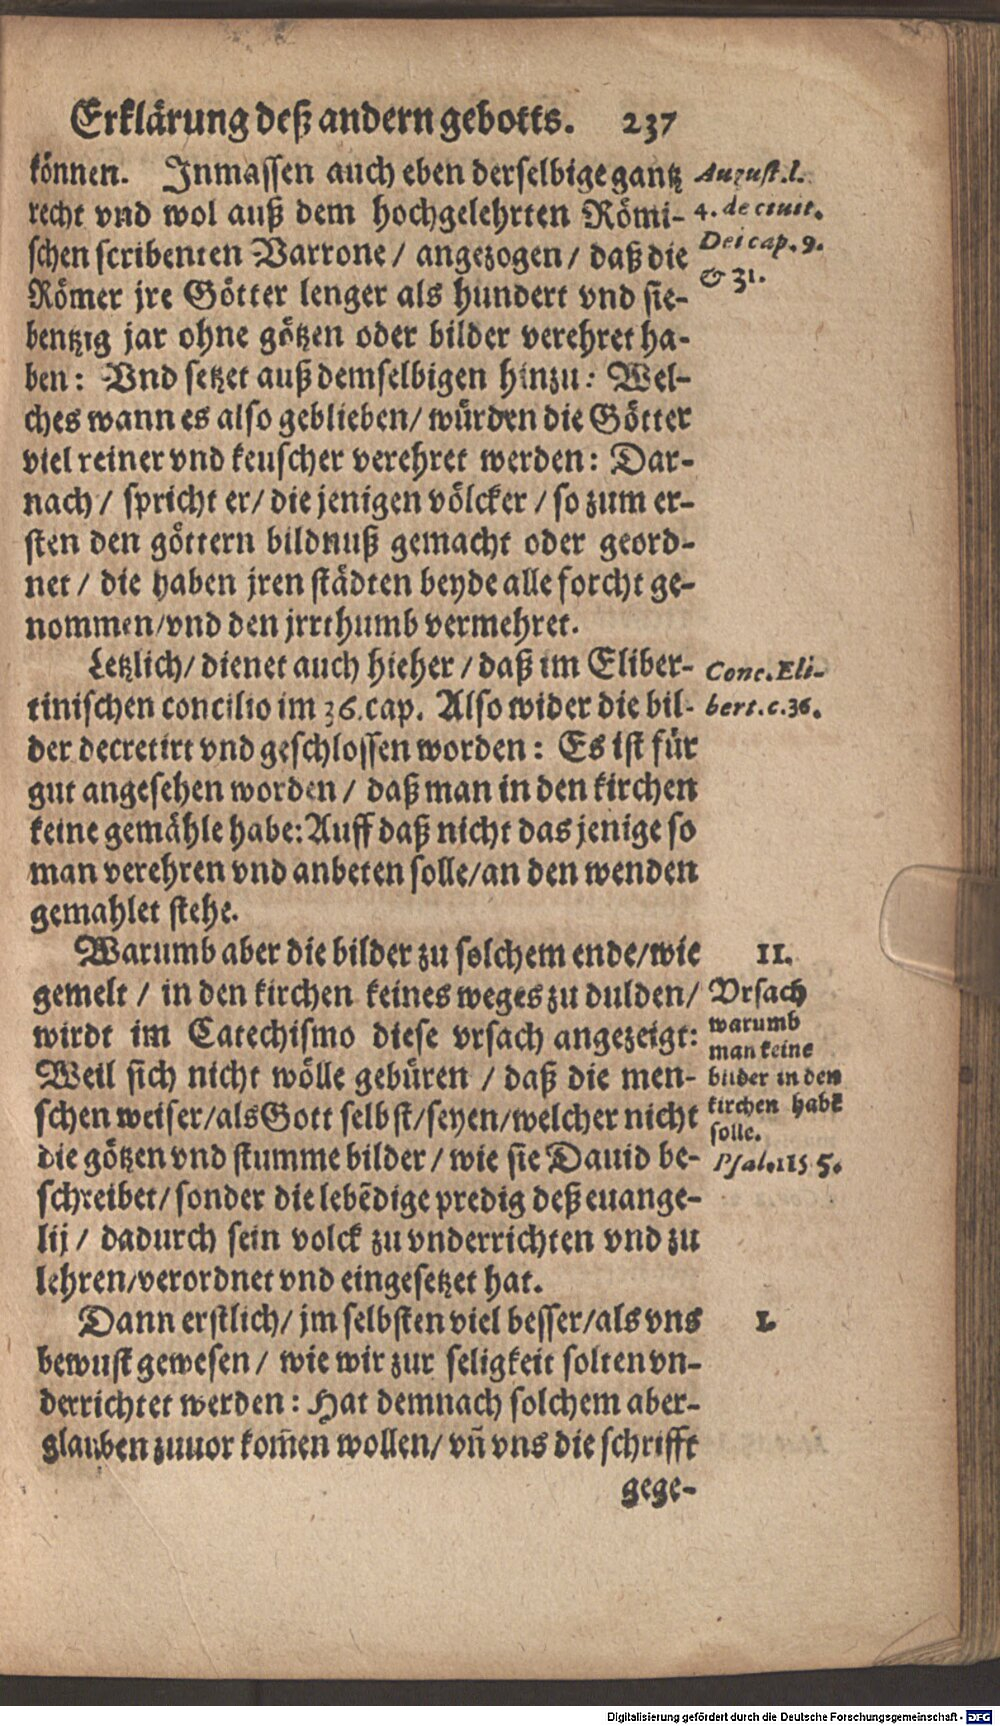 Erklärung deß andern gebotts. 237
können. Inmassen auch eben derselbige gantz
recht vnd wol auß dem hochgelehrten Römi-
schen scribenten Varrone/ angezogen/ daß die
Römer jre Götter lenger als hundert vnd sie-
bentzig jar ohne götzen oder bilder verehret ha-
ben: Vnd setzet auß demselbigen hinzu: Wel-
ches wann es also geblieben/ würden die Götter
viel reiner vnd keuscher verehret werden: Dar-
nach/ spricht er/ die jenigen völcker/ so zum er-
sten den göttern bildnuß gemacht oder geord-
net/ die haben jren städten beyde alle forcht ge-
nommen/vnd den jrrthumb vermehret.
August. l.
4. de ciuit.
Dei cap. 9.
& 31.
Letzlich/ dienet auch hieher/ daß im Eliber-
tinischen concilio im 36. cap. Also wider die bil-
der decretirt vnd geschlossen worden: Es ist für
gut angesehen worden/ daß man in den kirchen
keine gemähle habe: Auff daß nicht das jenige so
man verehren vnd anbeten solle/an den wenden
gemahlet stehe.
Conc. Eli-
bert. c. 36.
Warumb aber die bilder zu solchem ende/wie
gemelt/ in den kirchen keines weges zu dulden/
wirdt im Catechismo diese vrsach angezeigt:
Weil sich nicht wölle gebüren/ daß die men-
schen weiser/als Gott selbst/seyen/welcher nicht
die götzen vnd stumme bilder/ wie sie Dauid be-
schreibet/ sonder die lebēdige predig deß euange-
lij/ dadurch sein volck zu vnderrichten vnd zu
lehren/verordnet vnd eingesetzet hat.
II.
Vrsach
warumb
man keine
bilder in den
kirchen habē
solle.
Psal. 115 5.
Dann erstlich/ jm selbsten viel besser/als vns
bewust gewesen/ wie wir zur seligkeit solten vn-
derrichtet werden: Hat demnach solchem aber-
glauben zuuor kom̄en wollen/ vn̄ vns die schrifft
gege-
1.
Digitalisierung gefördert durch die Deutsche Forschungsgemeinschaft - DFG